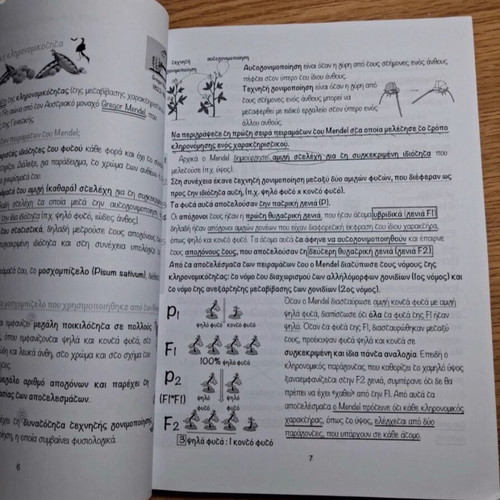 κληρονομικότητα
της κληρονομικότητας (της μεταβίβασης χαρακτηριστικών
από τον Αυστριακό μοναχό Gregor Mendel
της Γενετικής.
πειραμάτων του Mendel;
ιδιότητες του φυτού κάθε φορά και όχι το σύ
για παράδειγμα, το χρώμα των ανθέων
αμιγή (καθαρά) στελέχη για τη συγκεκριμένη
στελέχη τα οποία μετά την αυτογονιμοποίηση
την ίδια ιδιότητα (π.χ. ψηλό φυτό, είδος άνθος)
στατιστικά, δηλαδή μετρούσε τους απογόνους
ιδιότητα και στη συνέχεια υπολόγιζε
του, το μοσχομπίζελο (Pisum sativum), διότι
το μοσχομπίζελο που χρησιμοποιήθηκε από τον
εμφανίζει μεγάλη ποικιλότητα σε πολλούς
που εμφανίζονται ψηλά και κοντά φυτά, στο
και λευκά άνθη, στο χρώμα και στο σχήμα των
μεγάλο αριθμό απογόνων και παρέχει τη
των αποτελεσμάτων.
έχει τη δυνατότητα τεχνητής γονιμοποίησης,
η οποία συμβαίνει φυσιολογικά.
6
τεχνητή γονιμοποίηση
αυτογονιμοποίηση
Αυτογονιμοποίηση είναι όταν η γύρη από τους στήμονες ενός άνθους
πέφτει στον ύπερο του ίδιου άνθους.
Τεχνητή γονιμοποίηση είναι όταν η γύρη από
τους στήμονες ενός άνθους μπορεί να
μεταφερθεί με ειδικό εργαλείο στον ύπερο ενός
άλλου ανθους.
Να περιγράψετε τη πρώτη σειρά πειραμάτων του Mendel στα οποία μελέτησε το τρόπο
κληρονόμησης ενός χαρακτηριστικού.
Αρχικά ο Mendel δημιούργησε αμιγή στελέχη για τη συγκεκριμένη ιδιότητα που
μελετούσε (π.χ. ύψος).
Στη συνέχεια έκανε τεχνητή γονιμοποίηση μεταξύ δύο αμιγών φυτών, που διέφεραν ως
προς την ιδιότητα αυτή, (π.χ. ψηλό φυτό x κοντό φυτό).
Τα φυτά αυτά αποτελούσαν την πατρική γενιά (P).
Οι απόγονοι τους ήταν η πρώτη θυγατρική γενιά, που ήταν άτομα υβριδικά (γενιά F1)
δηλαδή ήταν απόγονοι αμιγών γονέων που είχαν διαφορετική έκφραση του ίδιου χαρακτήρα,
όπως ψηλό και κοντό φυτό. Τα άτομα αυτά τα άφηνε να αυτογονιμοποιηθούν και έπαιρνε
τους απογόνους τους, που αποτελούσαν τη δεύτερη θυγατρική γενιά (γενιά F2).
Από τα αποτελέσματα των πειραμάτων του ο Mendel διατύπωσε τους νόμους της
κληρονομικότητας: το νόμο του διαχωρισμού των αλληλόμορφων γονιδίων (1ος νόμος) και
το νόμο της ανεξάρτητης μεταβίβασης των γονιδίων (2ος νόμος).
P1
ψηλό φυτό κοντό φυτό
F1
100% ψηλά φυτά
P2
(F1*F1)
ψηλό φυτό ψηλό φυτό
F2
3 ψηλά φυτά : 1 κοντό φυτό
Όταν ο Mendel διασταύρωσε αμιγή κοντά φυτά με αμιγή
ψηλά φυτά, διαπίστωσε ότι όλα τα φυτά της F1 ήταν
ψηλά. Όταν τα φυτά της F1, διασταυρώθηκαν μεταξύ
τους, προέκυψαν φυτά ψηλά και κοντά σε
συγκεκριμένη και ίδια πάντα αναλογία. Επειδή ο
κληρονομικός παράγοντας, που καθορίζει το χαμηλό ύψος
ξαναεμφανίζεται στην F2 γενιά, συμπέρανε ότι δε θα
πρέπει να έχει «χαθεί» από την F1. Από αυτά τα
αποτελέσματα ο Mendel πρότεινε ότι κάθε κληρονομικός
χαρακτήρας, όπως το ύψος, ελέγχεται από δύο
παράγοντες, που υπάρχουν σε κάθε άτομο.
7